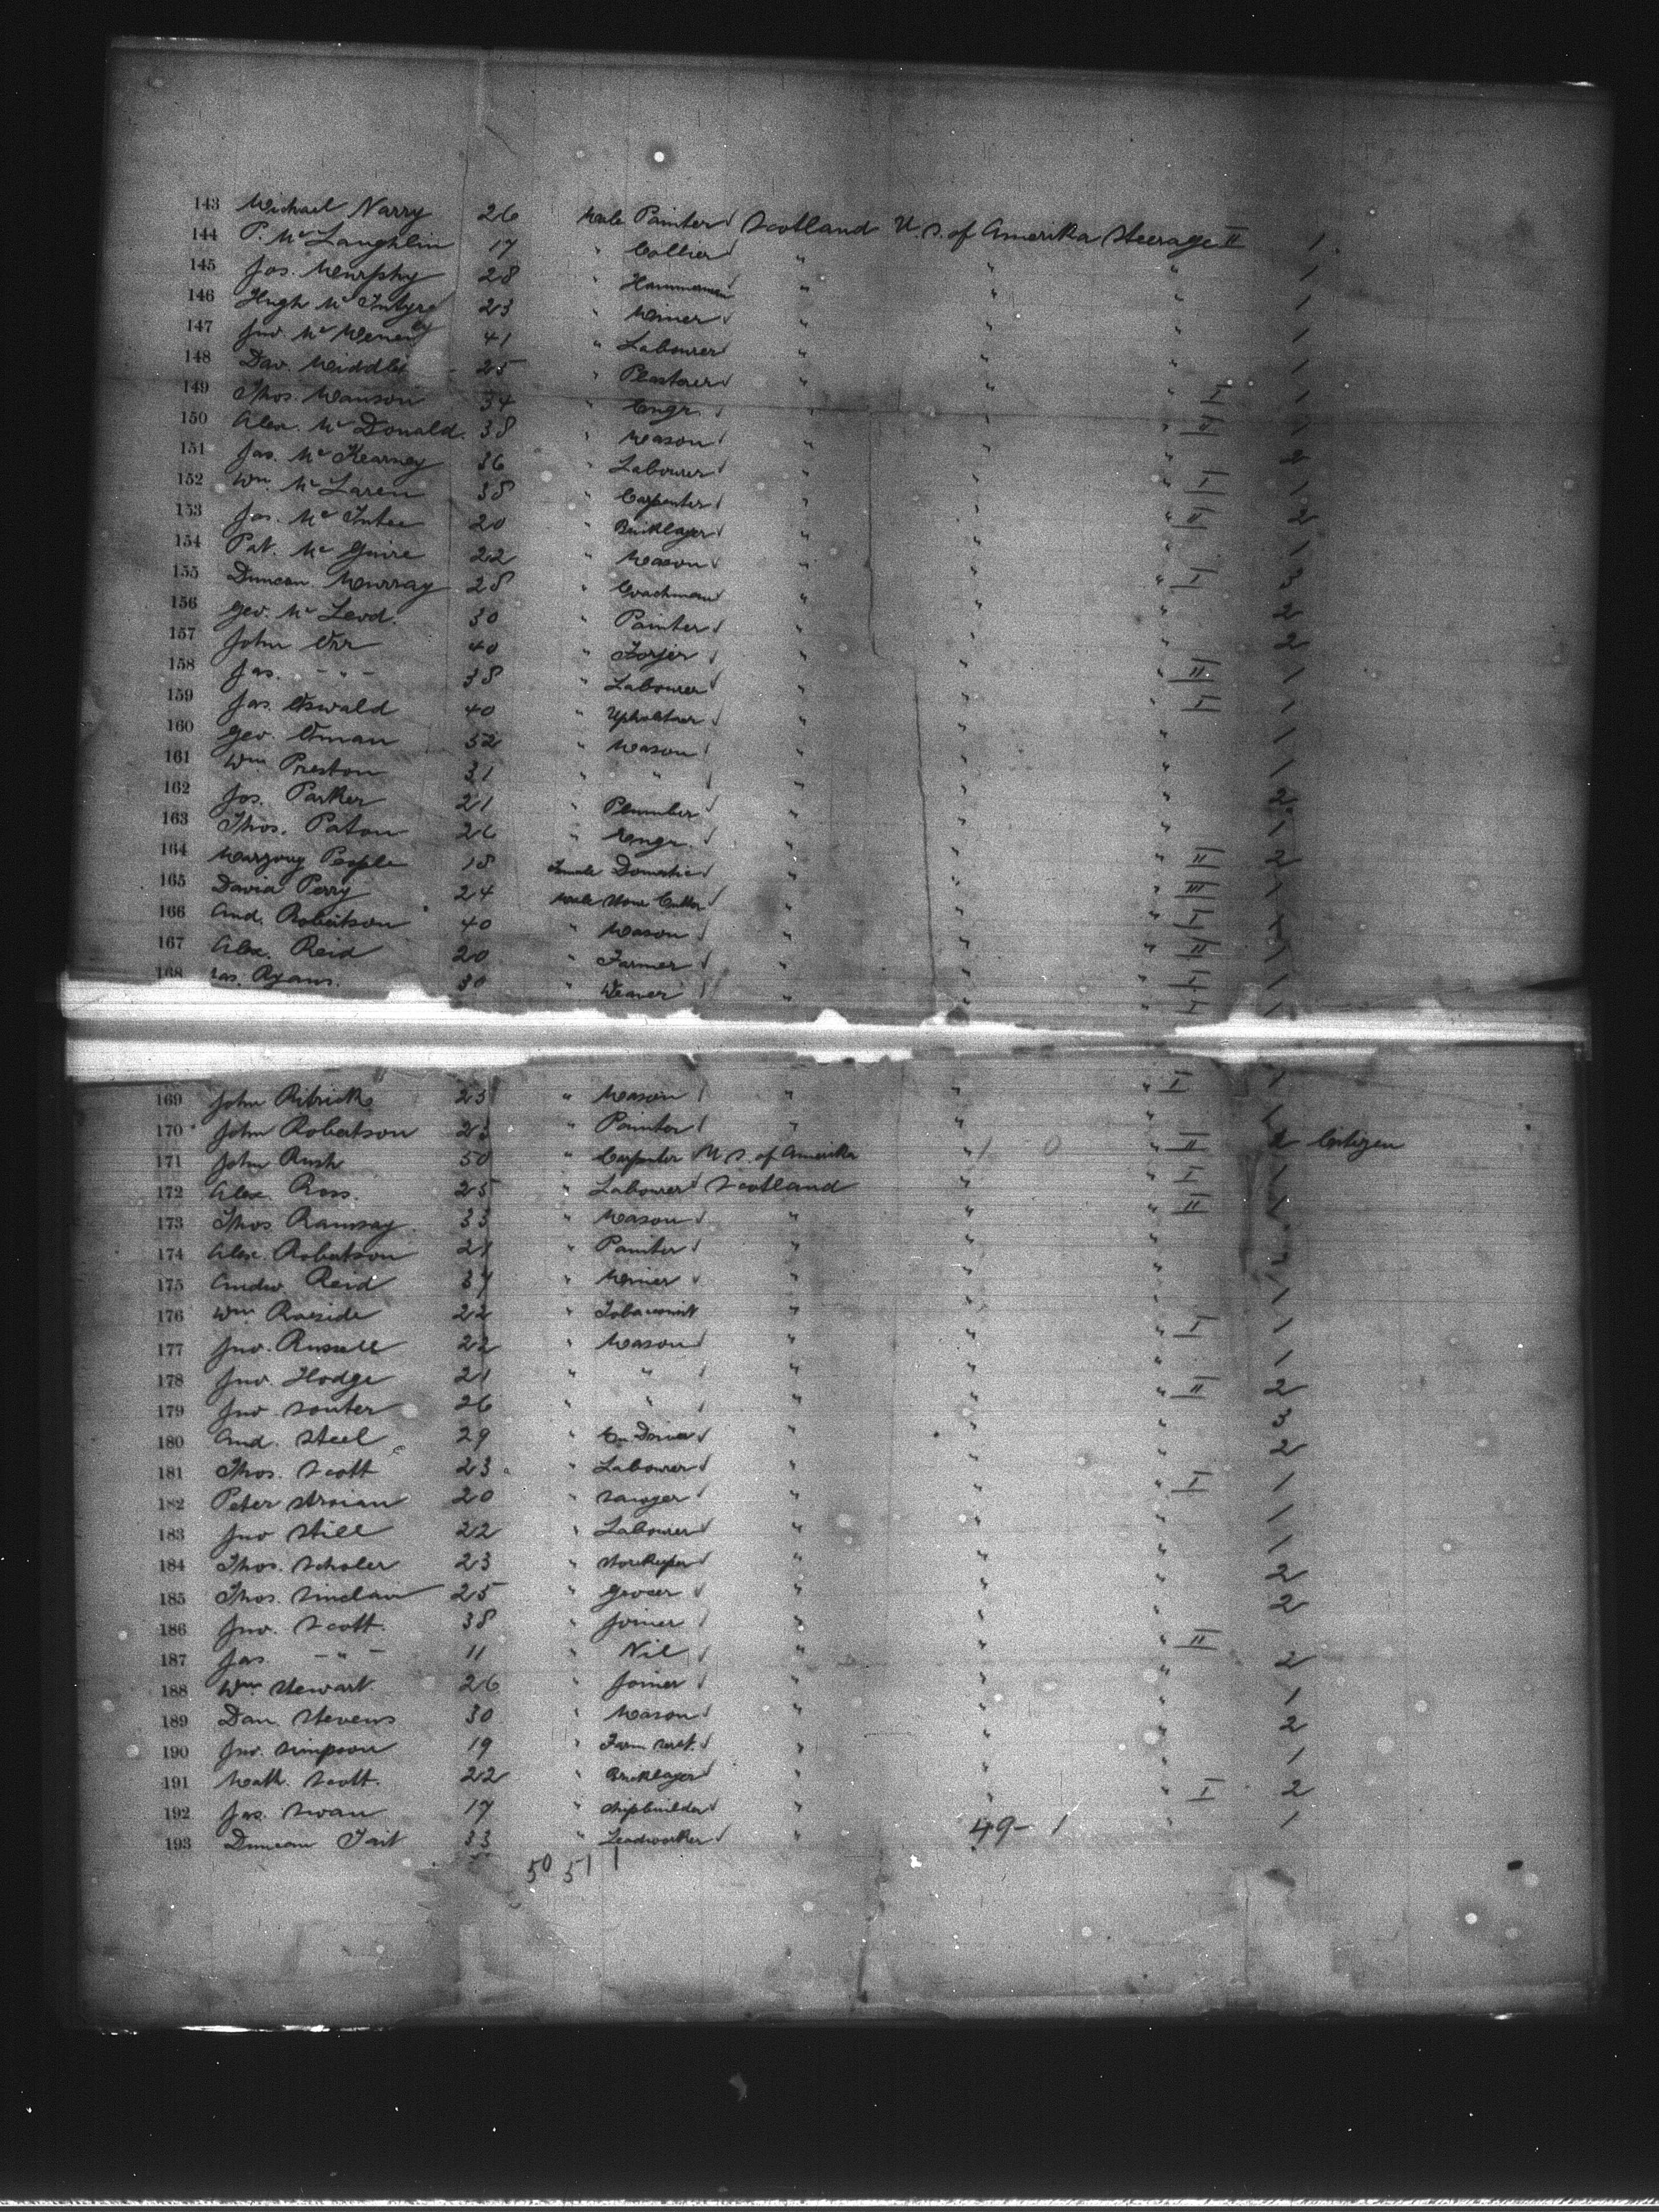 143 Michael Narry 26 Male Painter Scotland U. S. of Amerika Steerage II 1
144 P. Mc Laughlin 17 " Collier " " " 1
145 Jos. Murphy 28 " Hammerman " " " 1
146 Hugh Mc Intyre 23 " Miner " " " 1
147 Jno. Mc 41 " Labourer " " " 1
148 Dav. 25 " Plasterer " " " I 1
149 Thos. Manson 34 " Engr. " " " II 1
150 Alex. Mc Donald. 38 " Mason " " " 2
151 Jas. Mc Kearney 36 " Labourer " " " I 1
152 Wm. Mc Laren 38 " Carpenter " " " II 2
153 Jas. Mc 20 " Bricklayer " " " 1
154 Pat. Mc Guire 22 " Mason " " " I 3
155 Duncan Murray 28 " Coachman " " " 2
156 Geo. Mc Leod. 30 " Painter " " " 2
157 John Orr 40 " " " " II 1
158 Jas. - " - 38 " Labourer " " " I 1
159 Jas. Oswald 40 " Upholsterer " " " 1
160 Geo. Oman 52 " Mason " " " 1
161 Wm. Preston 31 " " " " " 2
162 Jos. Parker 21 " Plumber " " " 1
163 Thos. Paton 26 " Engr. " " " II 2
164 People 18 Female Domestic " " " III 1
165 David Perry 24 Male Stone Cutter " " " I
166 And. Robertson 40 " Mason " " " II 1
167 Alex. Reid 20 " Farmer " " " I 1
168 Jas. Ryans. 30 " Weaver " " " I 1
169 John 25 " Mason " " " I 1
170 John Robertson 23 " Painter " " 1
171 John Rush 50 " Carpenter U. S. of Amerika " 1 0 " II 2 Citizen
172 Alex. Ross. 25 " Labourer Scotland " " I 1
173 Thos. Ramsay 33 " Mason " " " II 1
174 Alex. Robertson 21 " Painter " " "
175 Andw. Reid 37 " Miner " " " 1
176 Wm. Raeside 22 " Tobacconist " " " 1
177 Jno. Russell 22 " Mason " " " I 1
178 Jno. Hodge 21 " " " " " 1
179 Jno. Souter 26 " " " " " II 2
180 And. Steel 29 " En. Driver " " " 3
181 Thos. Scott 23 " Labourer " " " 2
182 Peter 20 " Sawyer " " " I 1
183 Jno Still 22 " Labourer " " " 1
184 Thos. Scholer 23 " Storekeeper " " " 1
185 Thos. Sinclair 25 " Grocer " " " 2
186 Jno. Scott. 38 " Joiner " " " 2
187 Jas. - " - 11 " Nil " " " II
188 Wm. Stewart 26 " Joiner " " " 2
189 Dan. Stevens 30 " Mason " " " 1
190 Jno. Simpson 19 " Farm Servt. " " " 2
191 Math. Scott. 22 " Bricklayer " " " 1
192 Jas. Swan 17 " Shipbuilder " " " I 2
193 Duncan Tait 33 " Leadworker " 49 - 1 " 1
50 51 1